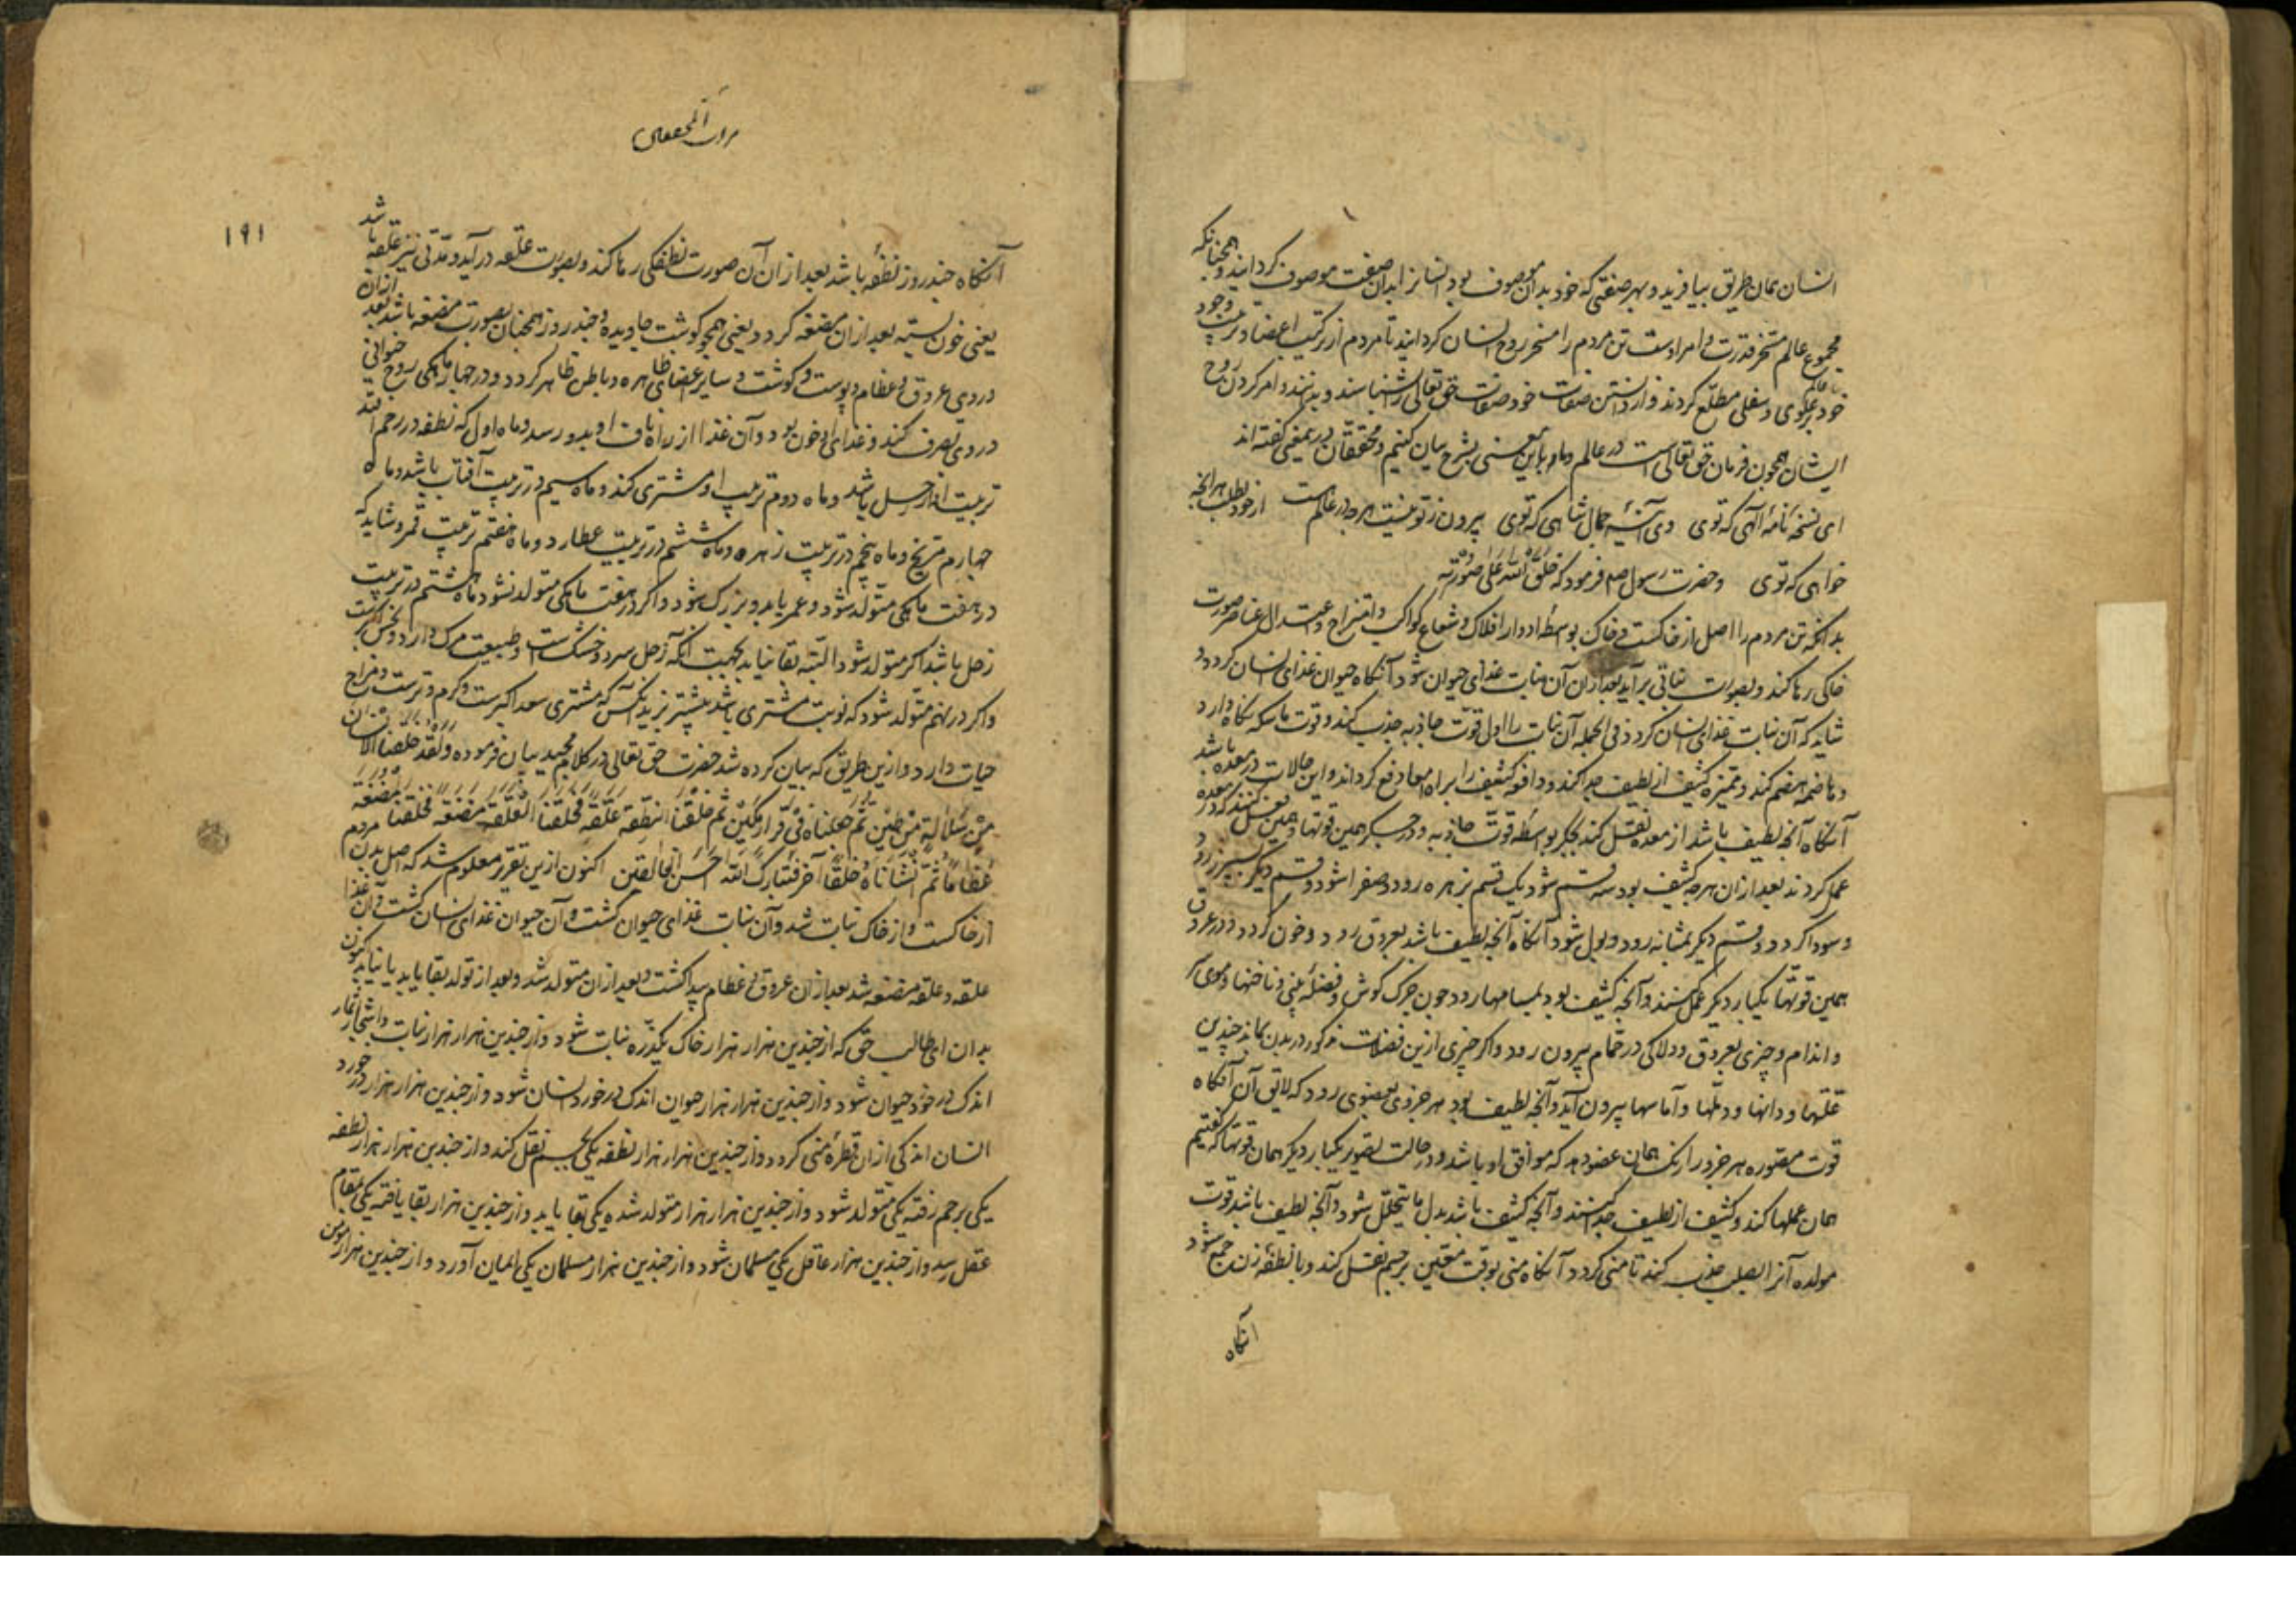 انسان بمان طریق بیافرید و بهر صفتی که خود بدان موصوف بود انسانرا بدان صفت موصوف کردانید و همچنانکه
مجموع عالم مسخر قدرت و امر اوست تن مردم را مسخر روح انسان کردانید تا مردم از ترکیب اعضا و تربیت وجود
خود بر عالم علوی و سفلی مطلع کردند و از دانستن صفات خود صفات حق تعالی را شناسند و بدانند و امر کردن روح
ایشان همچون فرمان حق تعالی است در عالم و ما این معنی بشرح بیان کنیم و محققان درین معنی کفته اند
ای نسخهٔ نامهٔ الهی که توی وی آئینهٔ جمال شاهی که توی بیرون ز تو نیست هرچه در عالم هست از خود بطلب هر آنچه
خواهی که توی و حضرت رسول صلعم فرمود که خلق الله علی صورته
بدانکه تن مردم را اصل از خاکست و خاک بواسطهٔ ادوار افلاک و شعاع کواکب و امتزاج و اعتدال عناصر صورت
خاکی رها کند و بصورت نباتی برآید بعد از آن آن نبات غذای حیوان شود آنکاه حیوان غذای انسان کردد و
شاید که آن نبات غذای انسان کردد فی الجمله آن نبات را اول قوت جاذبه جذب کند و قوت ماسکه نکاه دارد
و هاضمه هضم کند و ممیزه کثیف از لطیف جدا کند و دافعه کثیف را براه امعا دفع کرداند و این حالات در معده باشد
آنکاه آنچه لطیف باشد از معده نقل کند بجکر بواسطهٔ قوت جاذبه و در جکر همین قوتها و همین عمل کنند که در معده
عمل کردند بعد از آن هرچه کثیف بود سه قسم شود یک قسم بزهره رود و صفرا شود و قسم دیکر بسپرز رود
و سودا کردد و قسم دیکر بمثانه رود و بول شود آنکاه آنچه لطیف باشد بعروق رود و خون کردد و در عروق
همین قوتها یکبار دیکر عمل کنند و آنچه کثیف بود بمسامها رود چون چرک کوش و فضلهٔ بینی و ناخنها و موی سر
و اندام و چیزی بعروق و دلاکی در حمام بیرون رود و اکر چیزی ازین فضلات مذکور در بدن بماند چندین
علتها و دانها و دملها و آماسها بیرون آید و آنچه لطیف بود هر جزوی بعضوی رود که لایق آن آنکاه
قوت مصوره هر جزو را رنک همان عضو دهد که موافق او باشد و در حالت تصویر یکبار دیکر همان قوتها که کفتیم
همان عملها کند و کثیف از لطیف جدا کنند و آنچه کثیف باشد بدل ما یتحلل شود و آنچه لطیف باشد قوت
مولده آنرا بصلب جذب کند تا منی کردد آنکاه منی بوقت معین برحم نقل کند و با نطفهٔ زن جمع شود
آنکاه
مرآت المحققین
۱۹۱
آنکاه چند روز نطفه باشد بعد از آن آن صورت نطفکی رها کند و بصورت علقه درآید و مدتی نیز علقه باشد
یعنی خون بسته بعد از آن مضغه کردد یعنی همچو کوشت جاویده و چند روز همچنان بصورت مضغه باشد بعد از آن
در وی عروق و عظام و پوست و کوشت و سایر اعضای ظاهره و باطن ظاهر کردد و در چهار ماهکی روح حیوانی
در وی تصرف کند و غذای او خون بود و آن غذا از راه ناف او بدو رسد و ماه اول که نطفه در رحم افتد
تربیت او از زحل باشد و ماه دوم تربیت او مشتری کند و ماه سیم در تربیت آفتاب باشد و ماه
چهارم مریخ و ماه پنجم در تربیت زهره و ماه ششم در تربیت عطارد و ماه هفتم تربیت قمر و شاید که
در هفت ماهکی متولد شود و عمر یابد و بزرک شود و اکر در هفت ماهکی متولد نشود ماه هشتم در تربیت
زحل باشد اکر متولد شود البته بقا نیابد بجهت آنکه زحل سرد و خشک است و طبیعت مرک دارد و نحس اکبرست
و اکر در نهم متولد شود که نوبت مشتری باشد بیشتر بزید آنکس که مشتری سعد اکبرست و کرم و ترست و مزاج
حیات دارد و ازین طریق که بیان کرده شد حضرت حق تعالی در کلام مجید بیان فرموده ولقد خلقنا الانسان
من سلالة من طین ثم جعلناه فی قرار مکین ثم خلقنا النطفة علقة فخلقنا العلقة مضغة فخلقنا المضغة
عظاما ثم انشاناه خلقا آخر فتبارک الله احسن الخالقین اکنون ازین تقریر معلوم شد که اصل بدن مردم
از خاکست و از خاک نبات شد و آن نبات غذای حیوان کشت و آن حیوان غذای انسان کشت و آن غذا
علقه و علقه مضغه شد بعد از آن عروق و عظام پیدا کشت و بعد از آن متولد شد و بعد از تولد بقا یابد یا نیابد کنون
بدان ای طالب حق که از چندین هزار هزار خاک یکذره نبات شود و از چندین هزار هزار نبات و اشجار و اثمار
اندک درخورد حیوان شود و از چندین هزار هزار حیوان اندک درخورد انسان شود و از چندین هزار هزار درخورد
انسان اندکی از آن قطرهٔ منی کردد و از چندین هزار هزار نطفه یکی برحم نقل کند و از چندین هزار هزار نطفه
یکی برحم رفته یکی متولد شود و از چندین هزار هزار متولد شده یکی بقا یابد و از چندین هزار بقا یافته یکی بمقام
عقل رسد و از چندین هزار عاقل یکی مسلمان شود و از چندین هزار مسلمان یکی ایمان آورد و از چندین هزار مؤمن